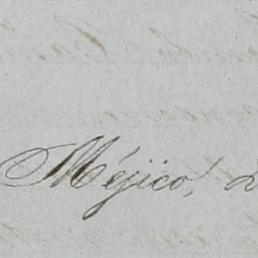 Méjico,